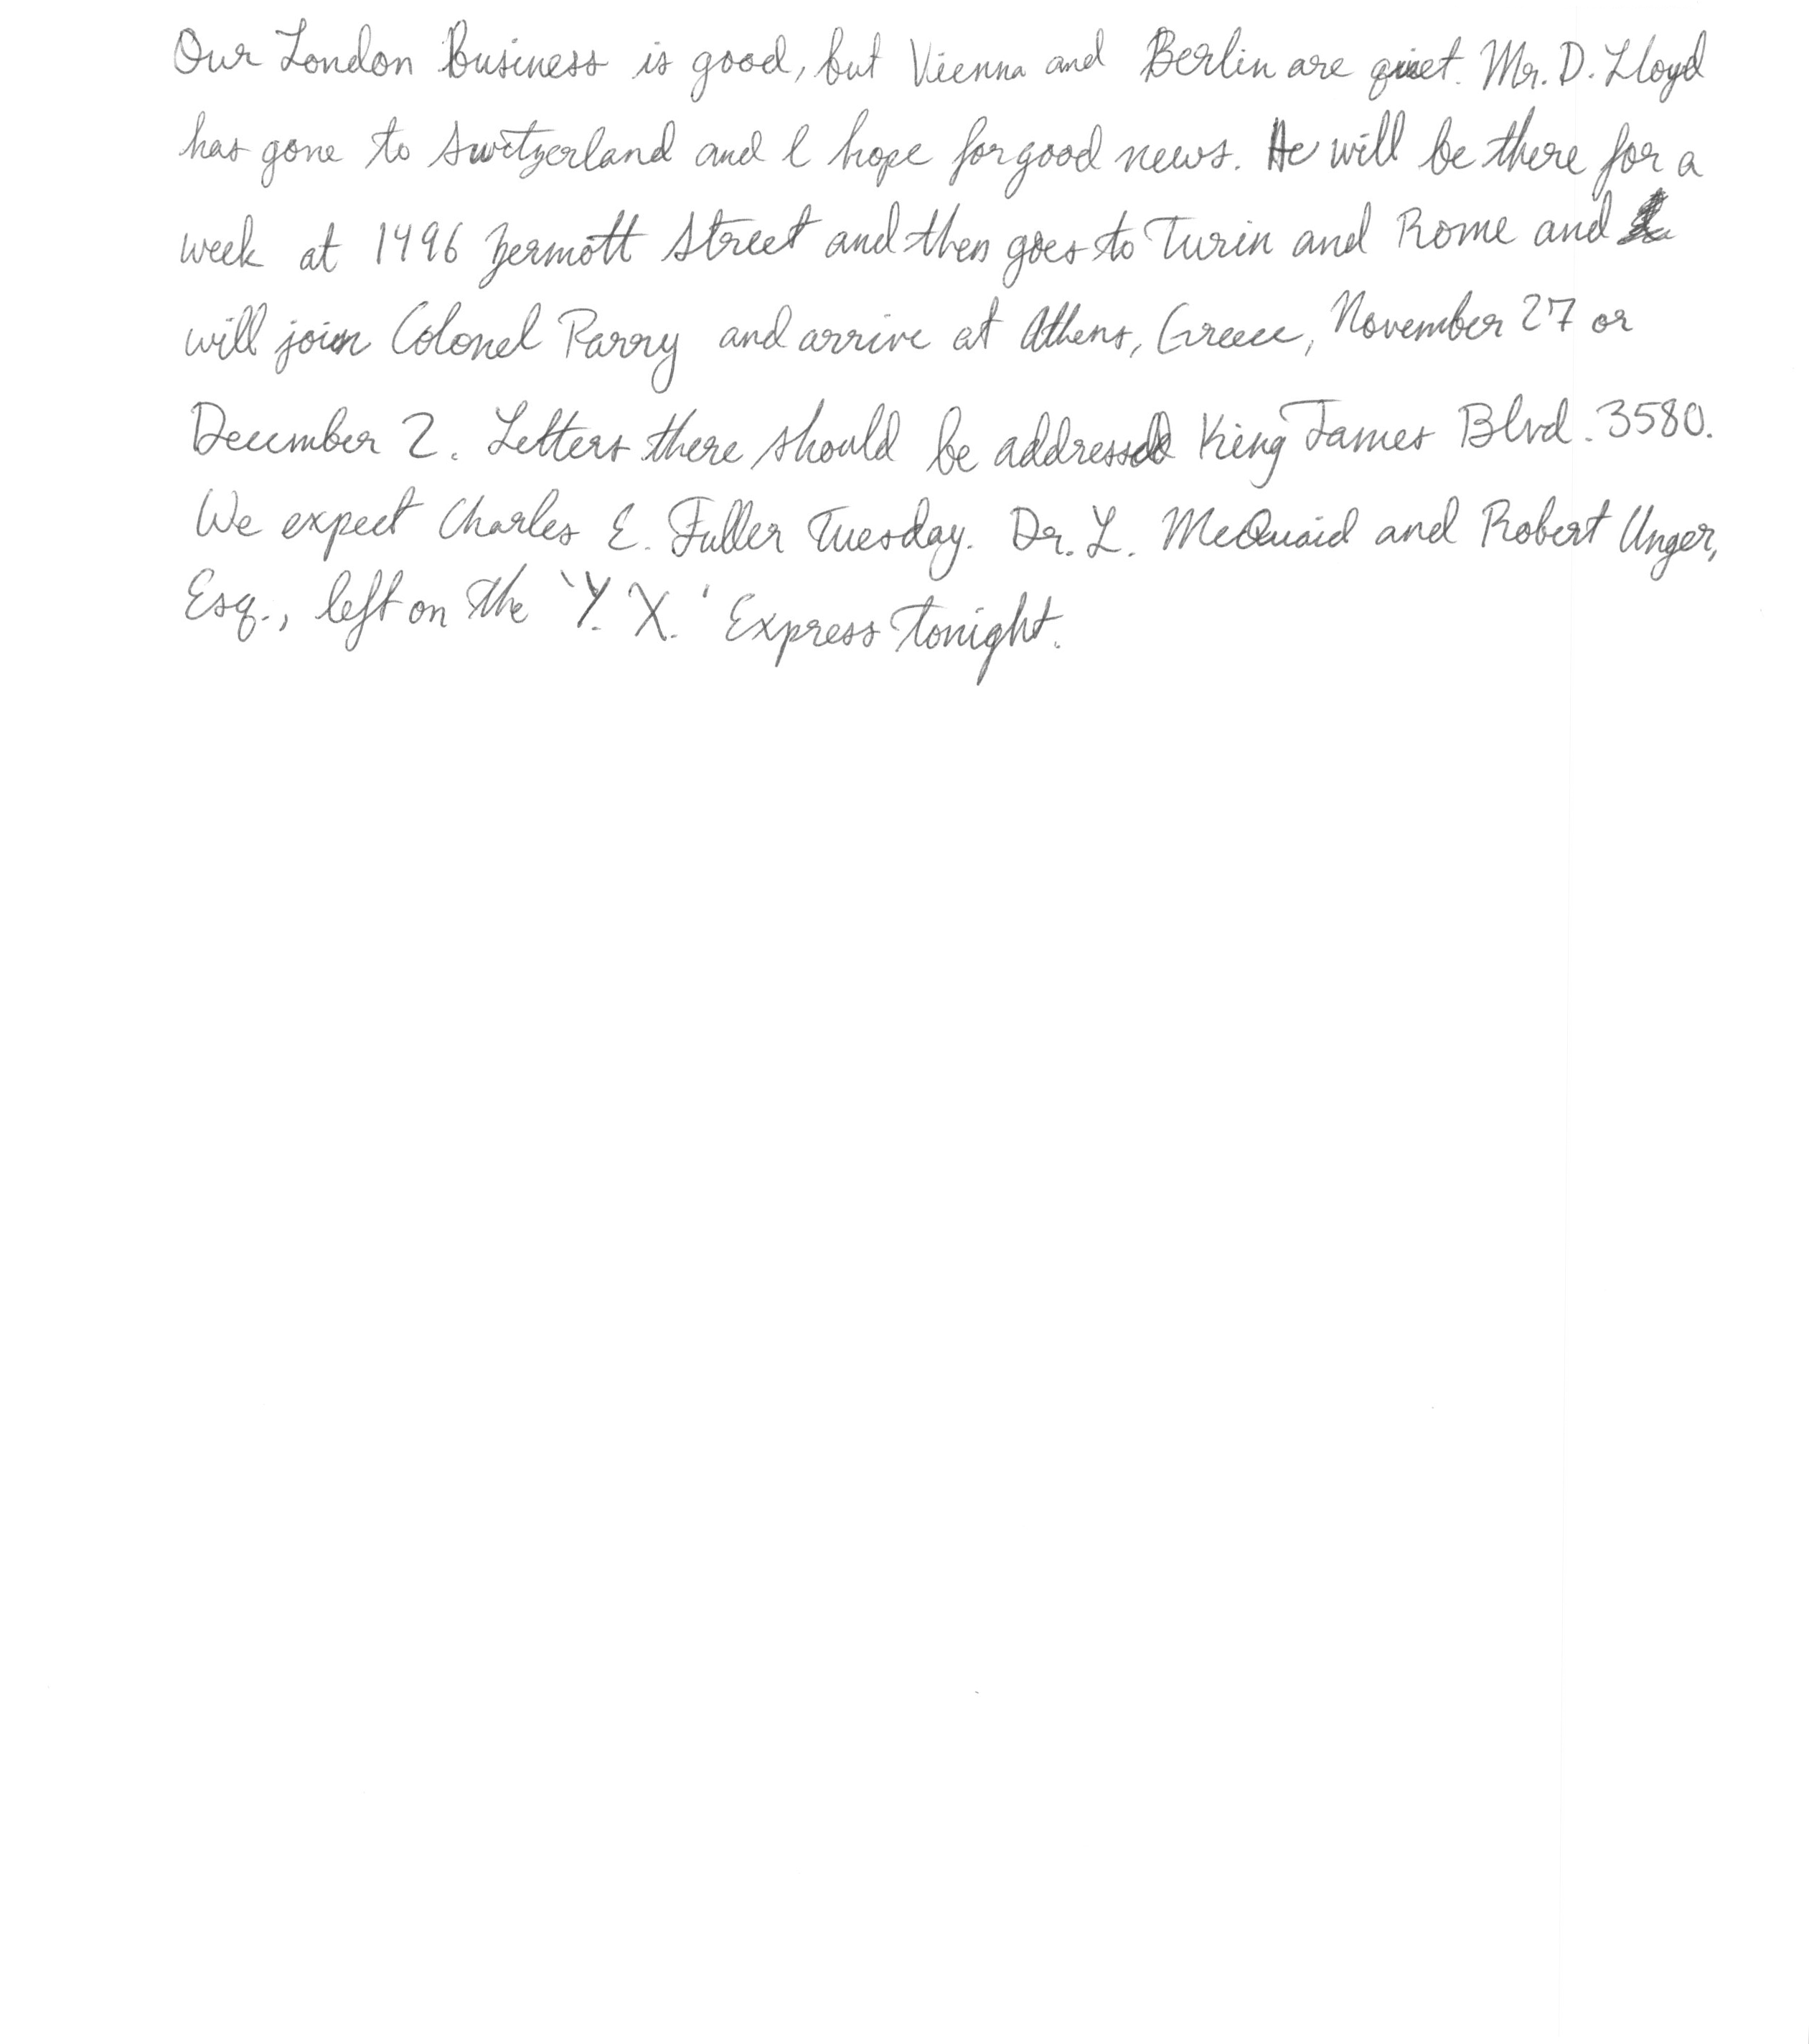 Our London Business is good, but Vienna and Berlin are quiet. Mr. D. Lloyd
has gone to Switzerland and I hope for good news. He will be there for a
week at 1496 Zermott Street and then goes to Turin and Rome and
will join Colonel Parry and arrive at Athens, Greece, November 27 or
December 2. Letters there should be addressed King James Blvd. 3580.
We expect Charles E. Fuller Tuesday. Dr. L. McQuaid and Robert Unger,
Esq., left on the 'Y. X.' Express tonight.